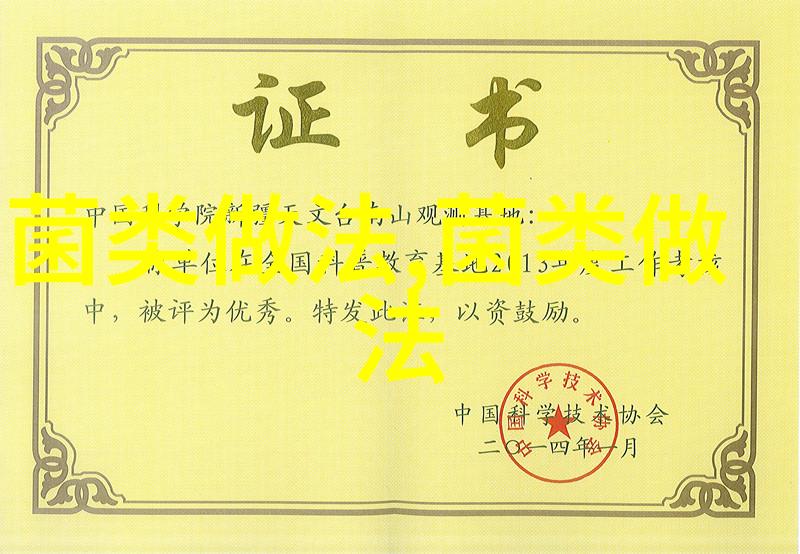 证书
中国科学院新疆天文台南山观测基地:
菌类做法,菌类做
法
你单位在全国科普教育基地2013年度工作考核
中，被评为优秀。特发此证，以资鼓励。
中国科学技术协会
二〇一四年一月
中国科学技术协会